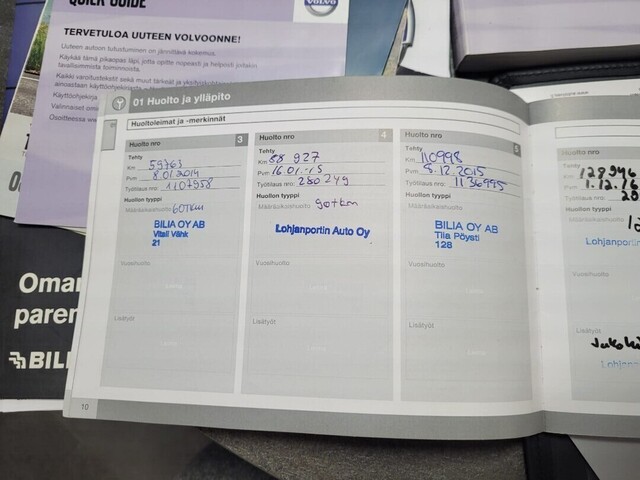 QUICK GUIDE
VOLVO
TERVETULOA UUTEEN VOLVOONNE!
Uuteen autoon tutustuminen on jännittävä kokemus.
Käykää tämä pikaopas läpi, jotta opitte nopeasti ja helposti joitakin
tavallisimmista toiminnoista.
Kaikki varoitustekstit sekä muut tärkeät ja
Käyttöohjekirja
Omai
paren
BILI
01 Huolto ja ylläpito
Huoltoleimat ja -merkinnät
Huolto nro 3
Tehty
Km 59763
Pvm 8.01.2014
Työtilaus nro: 1107958
Huollon tyyppi
Määräaikaishuolto 60tkm
BILIA OY AB
Vitali Vähk
21
Vuosihuolto
Leima
Lisätyöt
Leima
Huolto nro 4
Tehty
Km 88 927
Pvm 16.01.-15
Työtilaus nro: 280249
Huollon tyyppi
Määräaikaishuolto 90tkm
Lohjanportin Auto Oy
Vuosihuolto
Leima
Lisätyöt
Leima
Huolto nro 5
Tehty
Km 110998
Pvm 5.12.2015
Työtilaus nro: 1136995
Huollon tyyppi
Määräaikaishuolto
BILIA OY AB
Tiia Pöysti
128
Vuosihuolto
Leima
Lisätyöt
Leima
Huolto nro
Tehty
Km 128946
Pvm 1.12.16
Työtilaus nro: 28
Huollon tyyppi
Määräaikaishuolto
Lohjanportin
Vuosihuolto
Lisätyöt
10